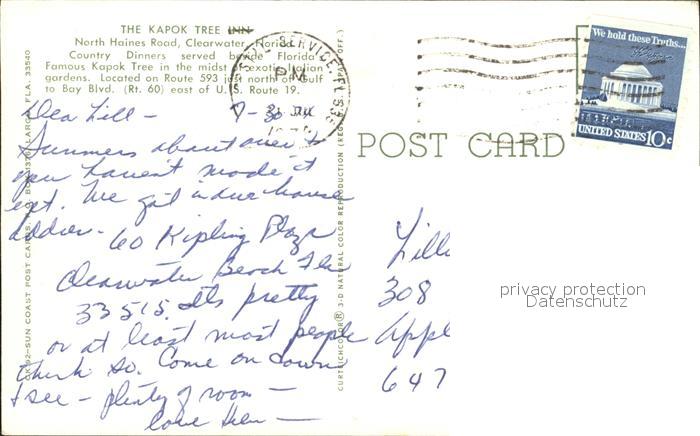 THE KAPOK TREE INN
North Haines Road, Clearwater, Florida
Country Dinners served beside Florida's
Famous Kapok Tree in the midst of exotic Indian
gardens. Located on Route 593 just north of Gulf
to Bay Blvd. (Rt. 60) east of U.S. Route 19.
Dear Lill - 7-30
Summers about over &
you haven't made it
yet. We got in our house
address - 60 Kipling Plaza
Clearwater Beach Fla
33515. Its pretty
or at least most people
think so. Come on down
& see - plenty of room -
Love Helen -
SUN COAST POST CARDS, LARGO, FLA. 33540
CURTEICHCOLOR® 3-D NATURAL COLOR REPRODUCTION (REG. U.S.A. PAT. OFF.)
POSTAL SERVICE, FL
PM
POST CARD
We hold these Truths...
UNITED STATES 10c
Lill
308
Appl
647
privacy protection
Datenschutz